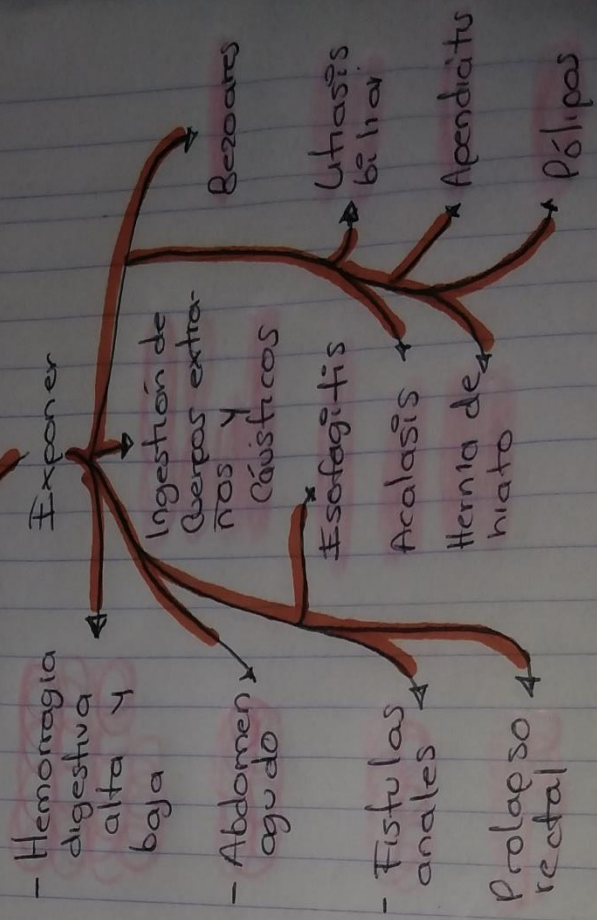 Exponer
- Hemorragia
digestiva
alta y
baja
- Abdomen
agudo
- Fistulas
anales
Prolapso
rectal
Ingestión de
cuerpos extra-
ños y
cáusticos
Esofagitis
Acalasis
Hernia de
hiato
Bezoares
Litiasis
biliar
Apendicitis
Pólipos